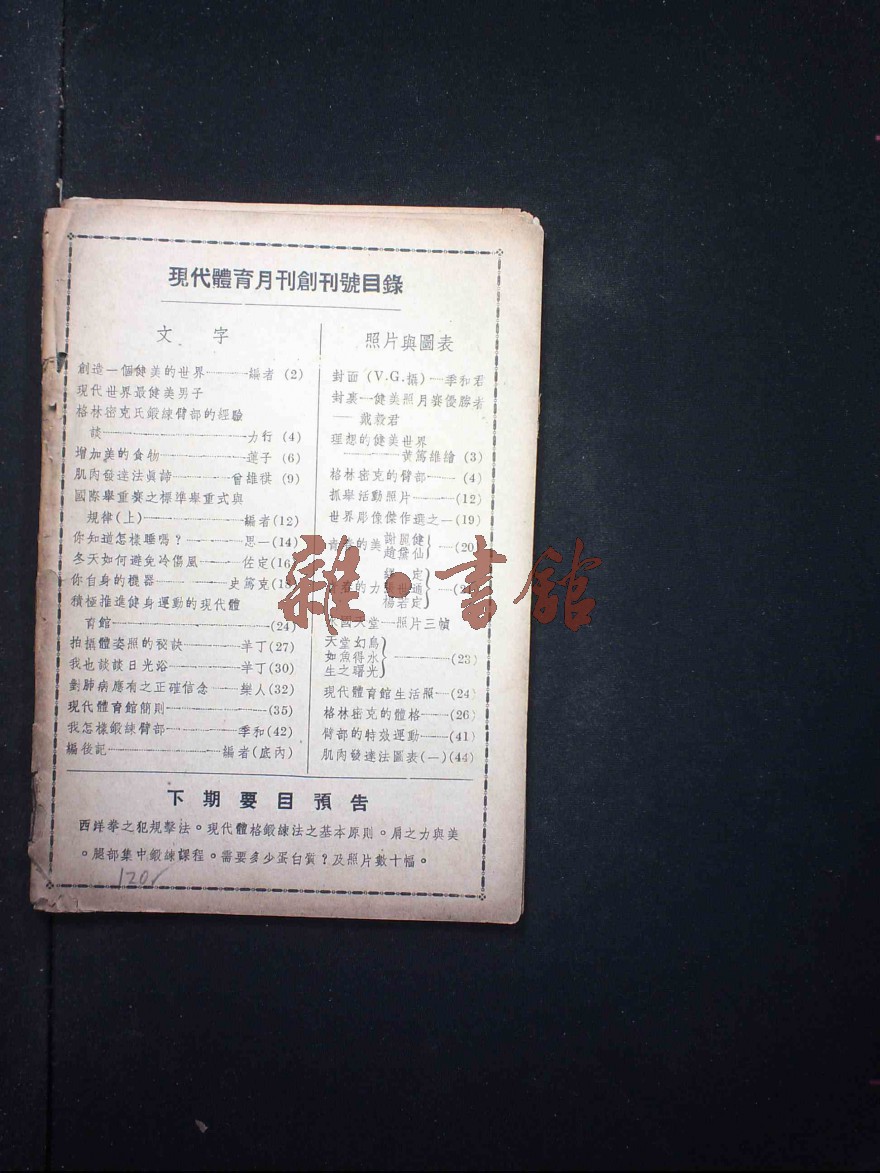 現代體育月刊創刊號目錄
文字
創造一個健美的世界————編者 (2)
現代世界最健美男子
格林密克氏鍛鍊臂部的經驗
談————力行 (4)
增加美的食物————蓮子 (6)
肌肉發達法眞諦————曾維祺 (9)
國際舉重賽之標準舉重式與
規律(上)————編者(12)
你知道怎樣睡嗎?————思一(14)
冬天如何避免冷傷風————佐定(16
你自身的機器————史篤克(18
積極推進健身運動的現代體
育館————(24)
拍攝體姿照的秘訣————羊丁(27)
我也談談日光浴————羊丁(30)
對肺病應有之正確信念————樂人(32)
現代體育館簡則————(35)
我怎樣鍛鍊臂部————季和(42)
編後記————編者(底內)
照片與圖表
封面 (V.G.攝)—季和君
封裏—健美照月賽優勝者
—戴毅君
理想的健美世界
————黃篤維繪 (3)
格林密克的臂部—— (4)
抓舉活動照片————(12)
世界彫像傑作選之一(19)
的美 謝鳳健 趙黛仙 —(20
的力 世通 楊若定
國天堂—照片三幀
天堂幻鳥
如魚得水 ————(23)
生之曙光
現代體育館生活照—(24)
格林密克的體格——(26)
臂部的特效運動——(41)
肌肉發達法圖表(一)(44)
下期要目預告
西洋拳之犯規擊法。現代體格鍛鍊法之基本原則。肩之力與美
。腿部集中鍛鍊課程。需要多少蛋白質?及照片數十幅。
120
雜·書館